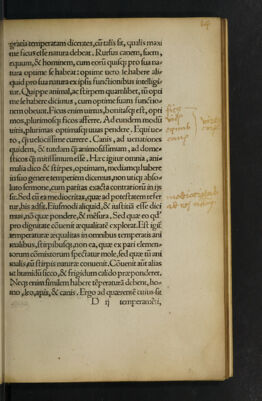 gratia temperatam dicetet, cũ talis sit, qualis maxi
me ficus esse natura debeat. Rursus canem, suem,
equum, & hominem, cum eorũ quisq; pro sua na
tura optime se habeat: optime uero se habere ali-
quid pro sua natura ex ipsis functionibus intelligi
tur. Quippe animal, ac stirpem quamlibet, tũ opti
me se habere dicimus, cum optime suum functio-
nem obeunt. Ficus enim uirtus, bonitasq; est, opti
mos, plurimosq; ficos afferre. Ad eundem modũ
uitis, plurimas optimasq; uuas pendere. Equi ue
ro, q̃ uelocissime currere. Canis, ad uenationes
quidem, & tutelam q̃ animosissimam, ad dome-
sticos q̃ mitissimum esse. Hæc igitur omnia, ani-
malia dico & stirpes, optimum, mediumq; habere
in suo genere temperiem dicemus, non utiq; abso
luto sermone, cum paritas exacta contrariorũ in ijs
sit. Sed cũ ea mediocritas, quæ ad potestatem refer
tur, his adsit. Eiusmodi aliquid, & iustitiã esse dici
mus, nõ quæ pondere, & mẽsura. Sed quæ eo qd'
pro dignitate cõuenit æqualitatẽ explorat. Est igit̃
temperaturæ æqualitas in omnibus temperatis ani
malibus, stirpibusq; non ea, quæ ex pari elemen-
torum cõmistorum spectatur mole, sed quæ tũ ani
malis, tũ stirpis naturæ conuenit. Cõuenit aũt alias
ut humidũ sicco, & frigidum calido præponderet.
Neq; enim similem habere tẽperaturã debent, ho-
mo, leo, apis, & canis. Ergo ad quærentẽ cuius sit
D ij temperamẽti,